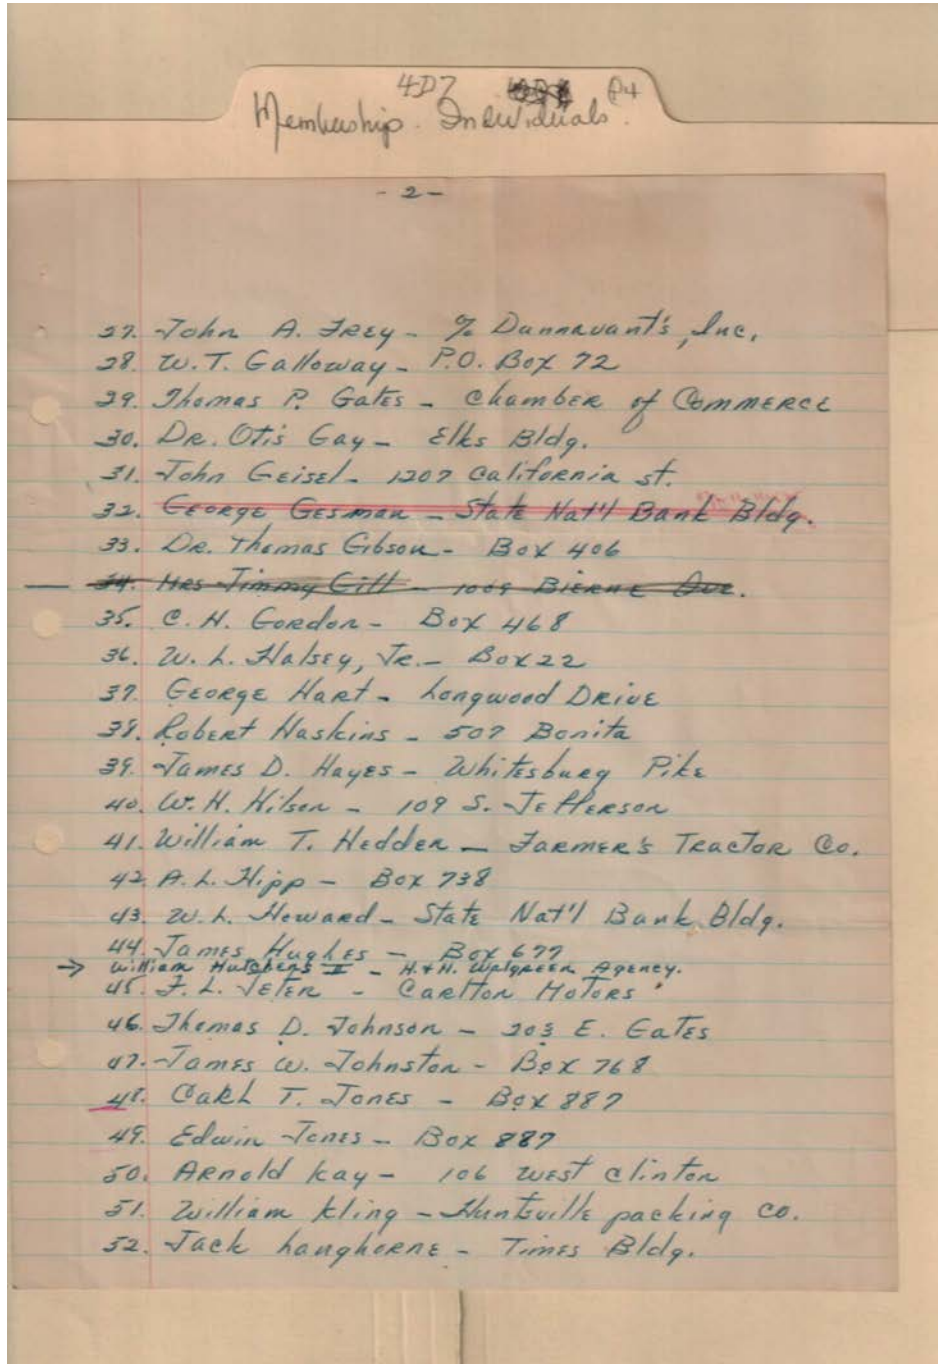 4D7 P4
Membership. Individuals.
- 2 -
27. John A. Frey - % Dunnavant's, Inc.
28. W.T. Galloway - P.O. Box 72
29. Thomas P. Gates - Chamber of Commerce
30. Dr. Otis Gay - Elks Bldg.
31. John Geisel - 1207 California st.
32. George Gesman - State Nat'l Bank Bldg.
33. Dr. Thomas Gibson - Box 406
34. Mrs Jimmy Gill - 1009 Bierne Ave.
35. C. H. Gordon - Box 468
36. W. L. Halsey, Jr. - Box 22
37. George Hart - Longwood Drive
38. Robert Haskins - 507 Bonita
39. James D. Hayes - Whitesburg Pike
40. W. H. Hilson - 109 S. Jefferson
41. William T. Hedden - Farmer's Tractor Co.
42. A. L. Hipp - Box 738
43. W. L. Howard - State Nat'l Bank Bldg.
44. James Hughes - Box 677
→ William Hutchens II - H. & H. Walgreen Agency.
45. F. L. Jeter - Carlton Motors
46. Thomas D. Johnson - 203 E. Gates
47. James W. Johnston - Box 768
48. Carl T. Jones - Box 887
49. Edwin Jones - Box 887
50. Arnold Kay - 106 West Clinton
51. William Kling - Huntsville packing Co.
52. Jack Langhorne - Times Bldg.